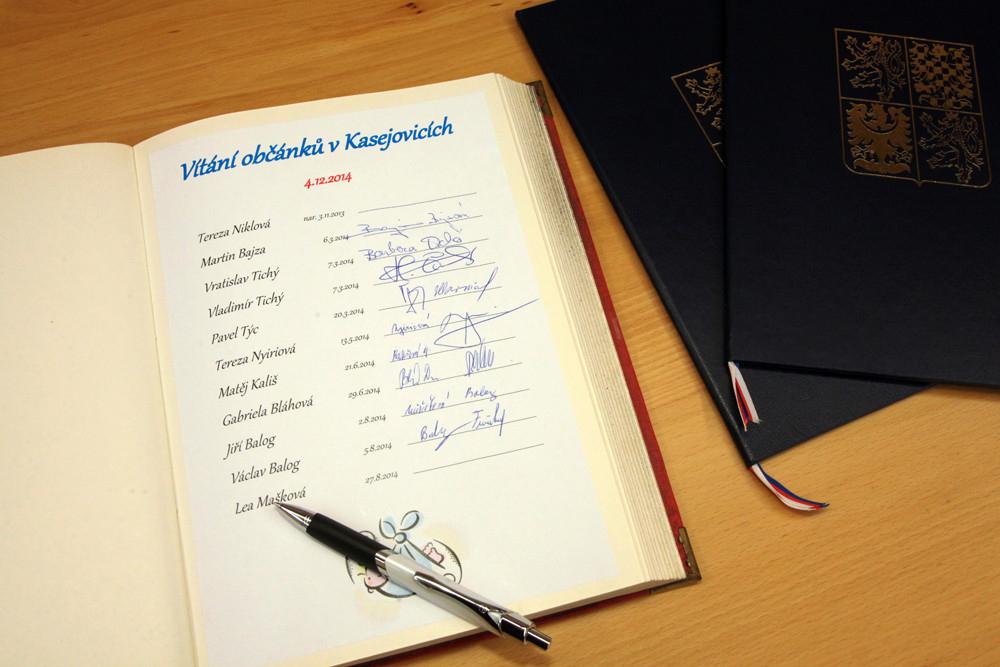 Vítání občánků v Kasejovicích
4.12.2014
Tereza Niklová nar. 3.11.2013
Martin Bajza 6.3.2014
Vratislav Tichý 7.3.2014 Barbora
Vladimír Tichý 7.3.2014
Pavel Týc 20.3.2014
Tereza Nyiriová 13.5.2014
Matěj Kališ 21.6.2014
Gabriela Bláhová 29.6.2014
Jiří Balog 2.8.2014 Balog
Václav Balog 5.8.2014
Lea Mašková 27.8.2014